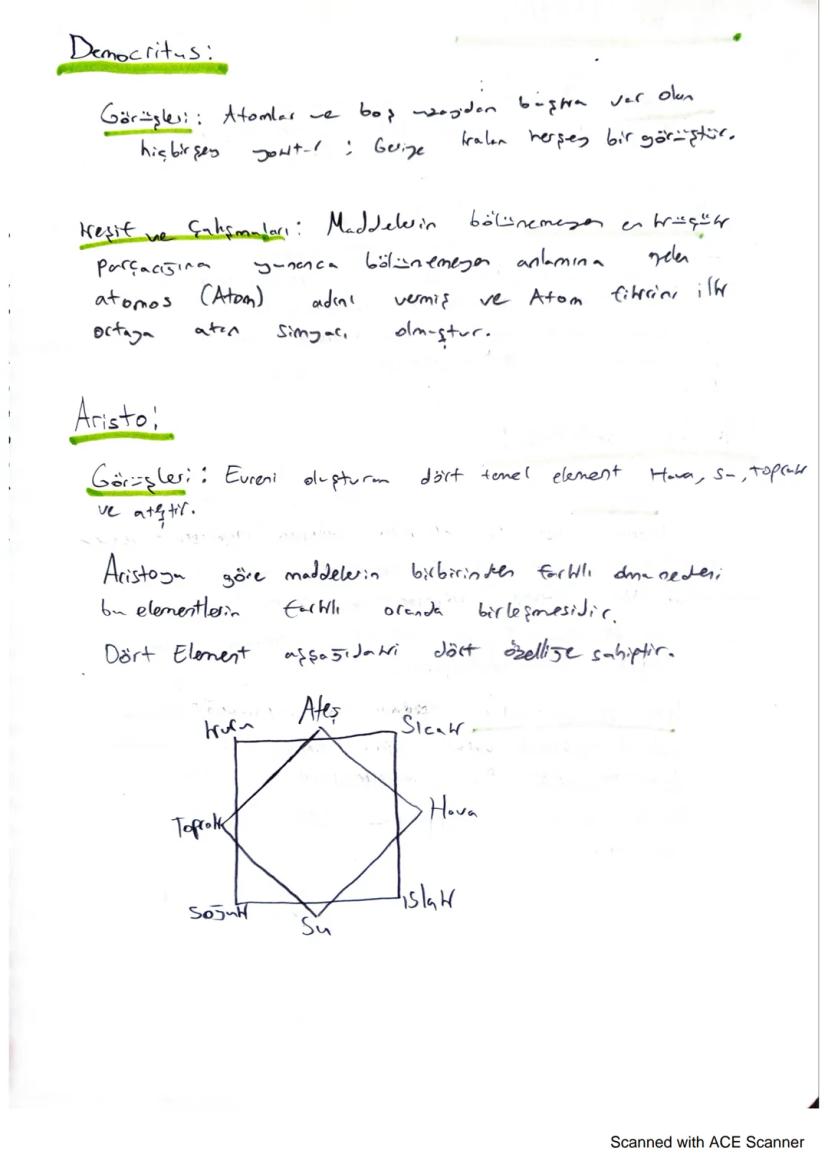 Democritus:
Görüşleri: Atomlar ve boş uzaydan başka var olan
hiçbir şey yoktur; Geriye kalan herşey bir görüştür.
Keşif ve Çalışmaları: Maddelerin bölünemeyen en küçük
parçacığına yunanca bölünemeyen anlamına gelen
atomos (Atom) adını vermiş ve Atom fikrini ilk
ortaya atan simyacı olmuştur.
Aristo:
Görüşleri: Evreni oluşturan dört temel element Hava, Su, toprak
ve ateştir.
Aristoya göre maddelerin birbirinden farklı olma nedeni
bu elementlerin farklı oranda birleşmesidir.
Dört Element aşşağıdaki dört özelliğe sahiptir.
Ateş
Kuru Sıcak
Toprak Hava
Soğuk ıslak
Su
Scanned with ACE Scanner